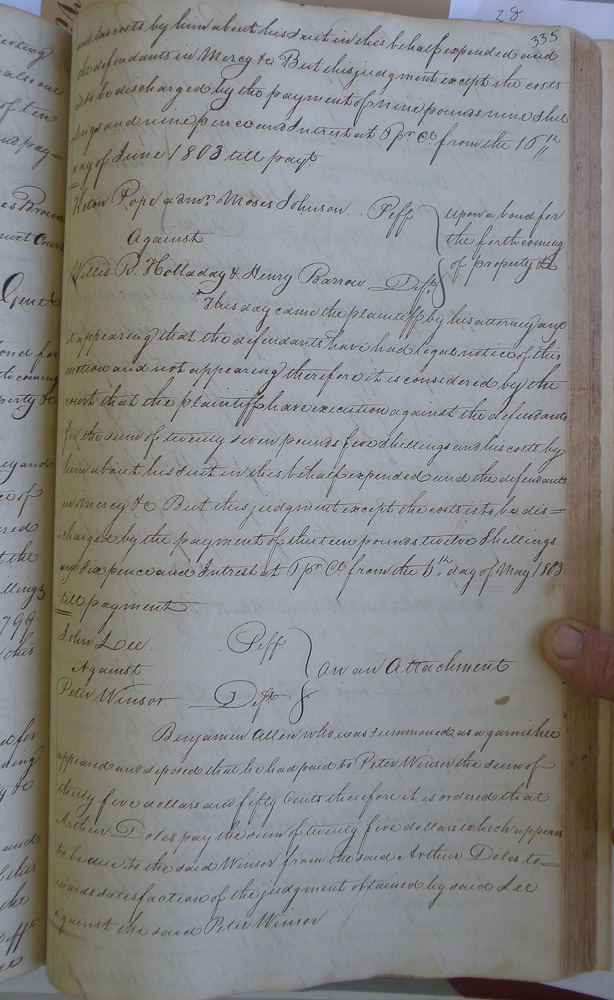 28
335
and his costs by him about his suit in this behalf expended and
the defendants in Mercy &c But this judgment except the costs
is to be discharged by the payment of nine pounds nine shil
lings and nine pence and Intrest at Pr. Ct. from the 15th
day of June 1803 till payt.
Pope admr. Moses Johnson Plff
Against
Willis R. Holladay & Henry Barrow Defts
upon a bond for
the forthcoming
of property &c
This day came the plaintiff by his attorney and
it appearing that the defendants have had legal notice of this
motion and not appearing therefore it is considered by the
court that the plaintiff have execution against the defendants
for the sum of twenty seven pounds five Shillings and his costs by
him about his suit in this behalf expended and the defendants
in mercy &c But this judgment except the costs is to be dis=
charged by the payment of thirteen pounds twelve Shillings
and Six pence and Intrest at Pr. Ct. from the day of May 1803
till payment
John Lee Plff
Against
Peter Winsor Deft
on an Attachment
Benjamin Allen who was summoned as a garnishee
appeared and deposed that he had paid to Peter Winsor the sum of
thirty five dollars and fifty Cents therefore it is ordered that
Arthur Doles pay the sum of twenty five dollars which appears
to be due to the said Winsor from the said Arthur Doles to=
wards satisfaction of the judgment obtained by said Lee
against the said Peter Winsor